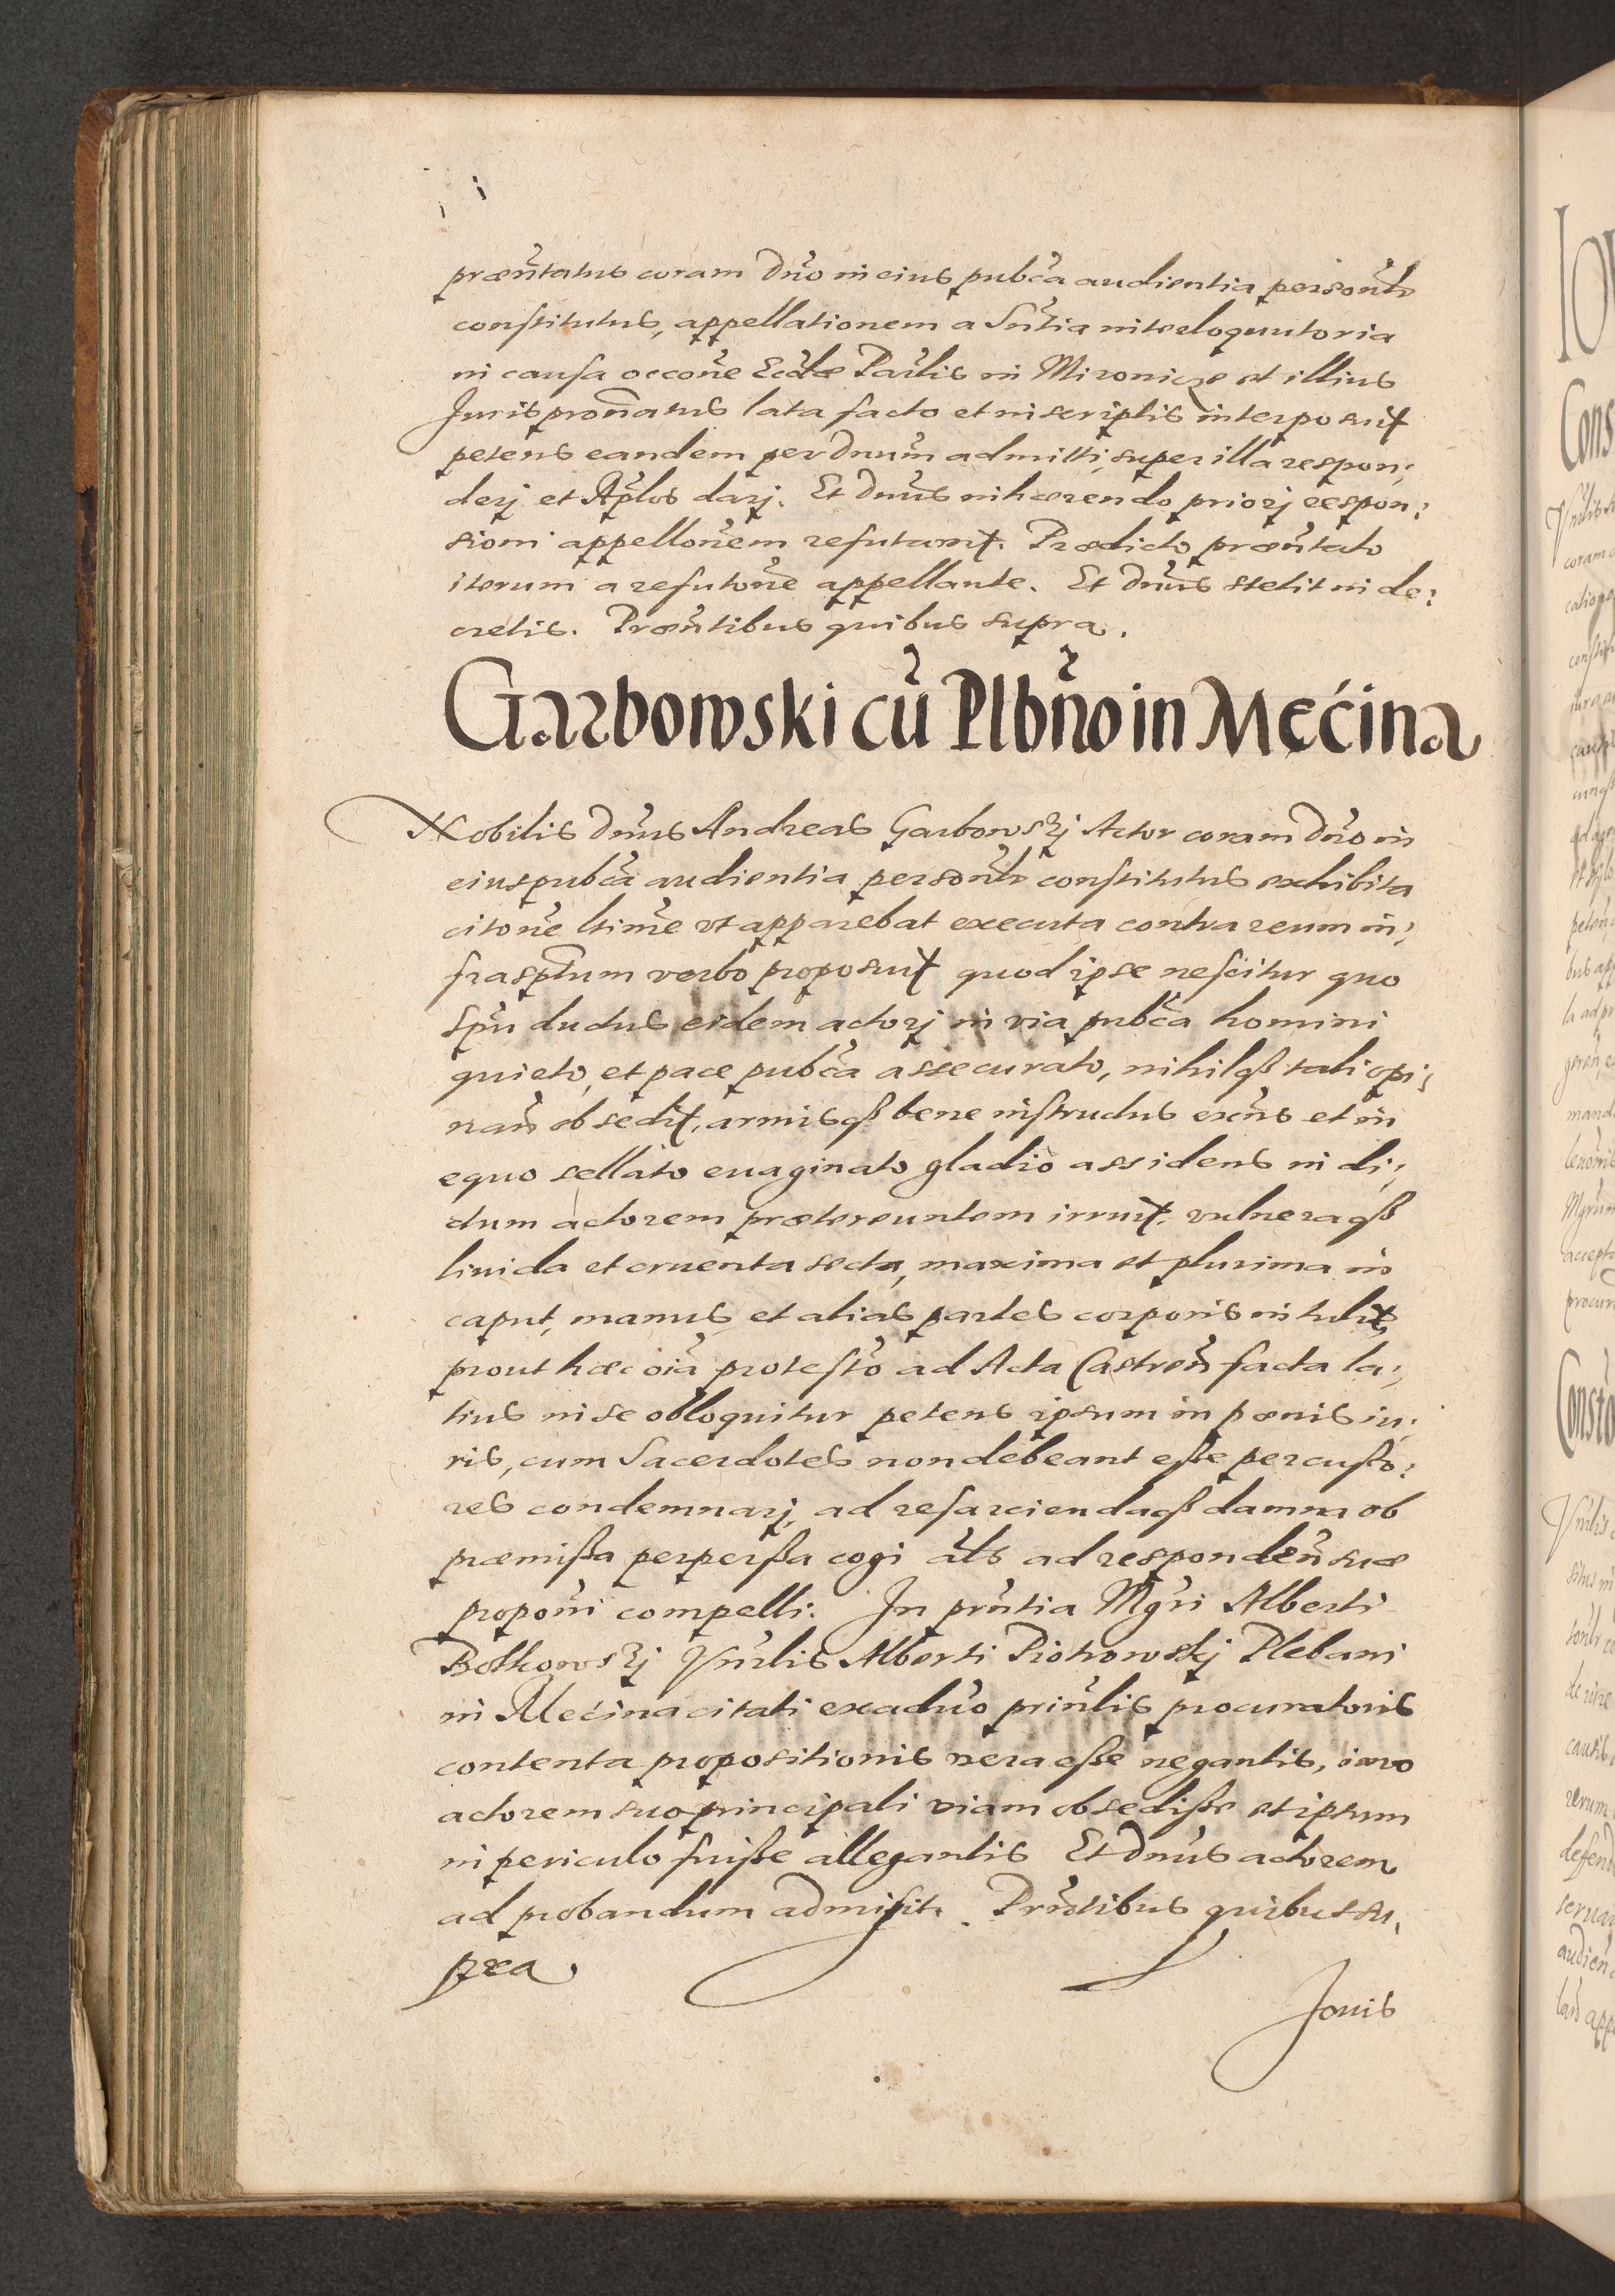 præñtatus coram Dño in eius pubca audientia personlr
constitutus, appellationem a Sñtia interloquutoria
in causa occone Eccliæ Parlis in Mironicze et illius
Jurispronatus lata facto et in scriptis interposuit
petens eandem per Dnum admitti, super illa respon:
derj et Aplos darj. Et Dnus inhærendo priorj respon:
sioni appellonem refutavit. Prædicto præntato
iterum a refutone appellante. Et Dnus stetit in de:
cretis. Præntibus quibus supra.
Garbowski cũ Plbño in Męćina
Nobilis Dnus Andreas Garbowskj Actor coram Dño in
eius pubca audientia personlr constitutus exhibita
citone ltime vt apparebat executa contra reum in:
frasptum verbo proposuit quod ipse nescitur quo
spu ductus eidem actorj in via pubca homini
quieto, et pace pubca assecurato, nihilqß tali opi:
nan obsedit, armisqß bene instructus exns et in
equo sellato euaginato gladio assidens in di:
ctum actorem prætereuntem irruit, vulneraqß
liuida et cruenta secta, maxima et plurima in
caput, manus, et alias partes corporis intulit,
prout hæc oia protesto ad Acta Castren facta la:
tius in se obloquitur petens ipsum in pœnis iu:
ris, cum Sacerdotes non debeant eße percußo:
res condemnarj, ad resarciendaqß damna ob
præmißa perperßa cogi als ad responden suæ
proponi compelli. In prntia Mgri Alberti
Botkowskj Vnrlis Alberti Piotrowskj Plebani
in Męćina citati ex aduo prinlis procuratoris
contenta propositionis vera eße negantis, imo
actorem suo principali viam obsediße et ipsum
in periculo fuiße allegantis Et Dnus actorem
ad probandum admisit. Prntibus quibus su:
pra
Jouis